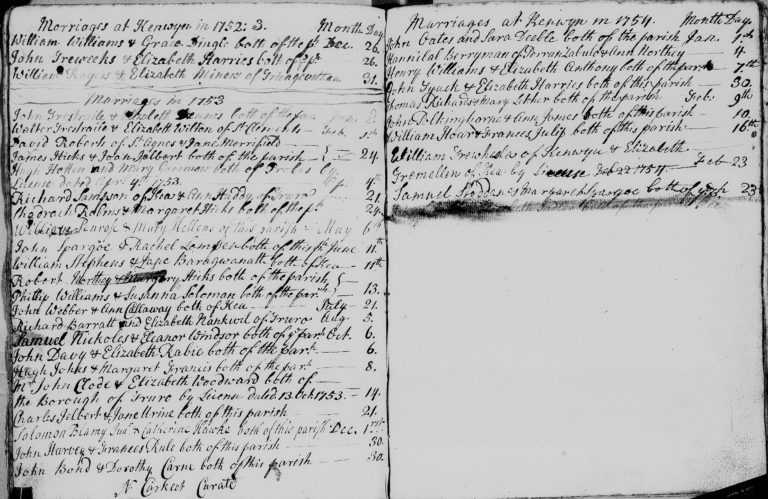 Marriages at Kenwyn in 1752: 3. Month Day
William Williams & Grace Dingle both of the psh Dec. 26.
John Treweeks & Elizabeth Harries both of psh 26.
William Rogers & Elizabeth Minors of 31.
Marriages in 1753
John both of the par
Walter Trestraile & Elizabeth Wilton of St Clements Feb. 1st
David Roberts of St Agnes & Jane Merrifield
James Hicks & Joan Jolbert both of the parish 24.
Hugh and Mary both of Truro by
License dated Apr: 4. 1753. 4th
Richard Sampson of Kea & Ann Huddy of Truro 21
& Margaret Hicks both of the psh 24.
William & Mary Hellens of this parish May 6th
John Spargoe & Rachel Lampen both of this psh June 11th
William Stephens & Jane Baragwanath both of Kea 11th
Robert Hicks both of the parish
Phillip Williams & Susanna Soloman both of the par 13.
John Webber & Ann Callaway both of Kea July 21.
Richard Barratt and Elizabeth Nankivil of Truro Aug. 5.
Samuel Nickoles & Eleanor Windsor both of ye par Oct. 6.
John Davy & Elizabeth Rabie both of the par 6.
Hugh Johns & Margaret Francis both of the par 8.
Mr John Clode & Elizabeth Woodward both of
the Borough of Truro by License dated 13 Oct 1753. 14.
Charles Jelbert & Jane Urine both of this parish 21.
Solomon Blamy Junr & Catherine Hawke both of this parish Dec. 1st
John Harvey & Frances Rule both of this parish 30.
John Bond & Dorothy Carne both of this parish 30.
N Carkeet Curate
Marriages at Kenwyn in 1754. Month Day.
John Oates and Sara Teeble both of the parish Jan. 1st
Hannibal Berryman of Perranzabulo & Ann Northey 4.
Henry Williams & Elizabeth Anthony both of the parsh 7th
John Tyack & Elizabeth Harries both of this parish 30.
Thomas Richards & Mary both of the parish Feb: 9th
John & Ann Jones both of this parish 10
William Hoar & Frances Julip both of this parish 16th
William of Kenwyn & Elizabeth
Tremellen of Kea by License Feb 22 1754 Feb 23
Samuel & Margaret Spargoe both of psh 23